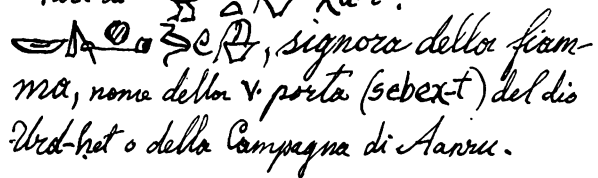 , signora della fiam-
ma, nome della v. porta (sebex-t) del dio
Urd-het o della Campagna di Aanru.